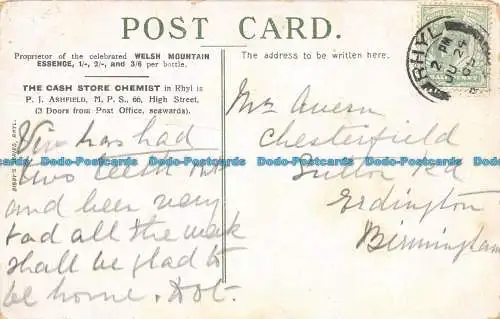 POST CARD.
Proprietor of the celebrated WELSH MOUNTAIN
ESSENCE, 1/-, 2/-, and 3/6 per bottle.
The address to be written here.
THE CASH STORE CHEMIST in Rhyl is
P. J. ASHFIELD, M. P. S., 66, High Street,
(3 Doors from Post Office, seawards).
RHYL
2 PM
JU 24
Viv has had
two teeth out
and been very
bad all the week
shall be glad to
be home. Dot.
Mrs Avern
Chesterfield
Sutton Rd
Erdington
Birmingham
Dodo-Postcards Dodo-Postcards Dodo-Postcards
Dodo-Postcards Dodo-Postcards Dodo-Postcards
Dodo-Postcards Dodo-Postcards Dodo-Postcards